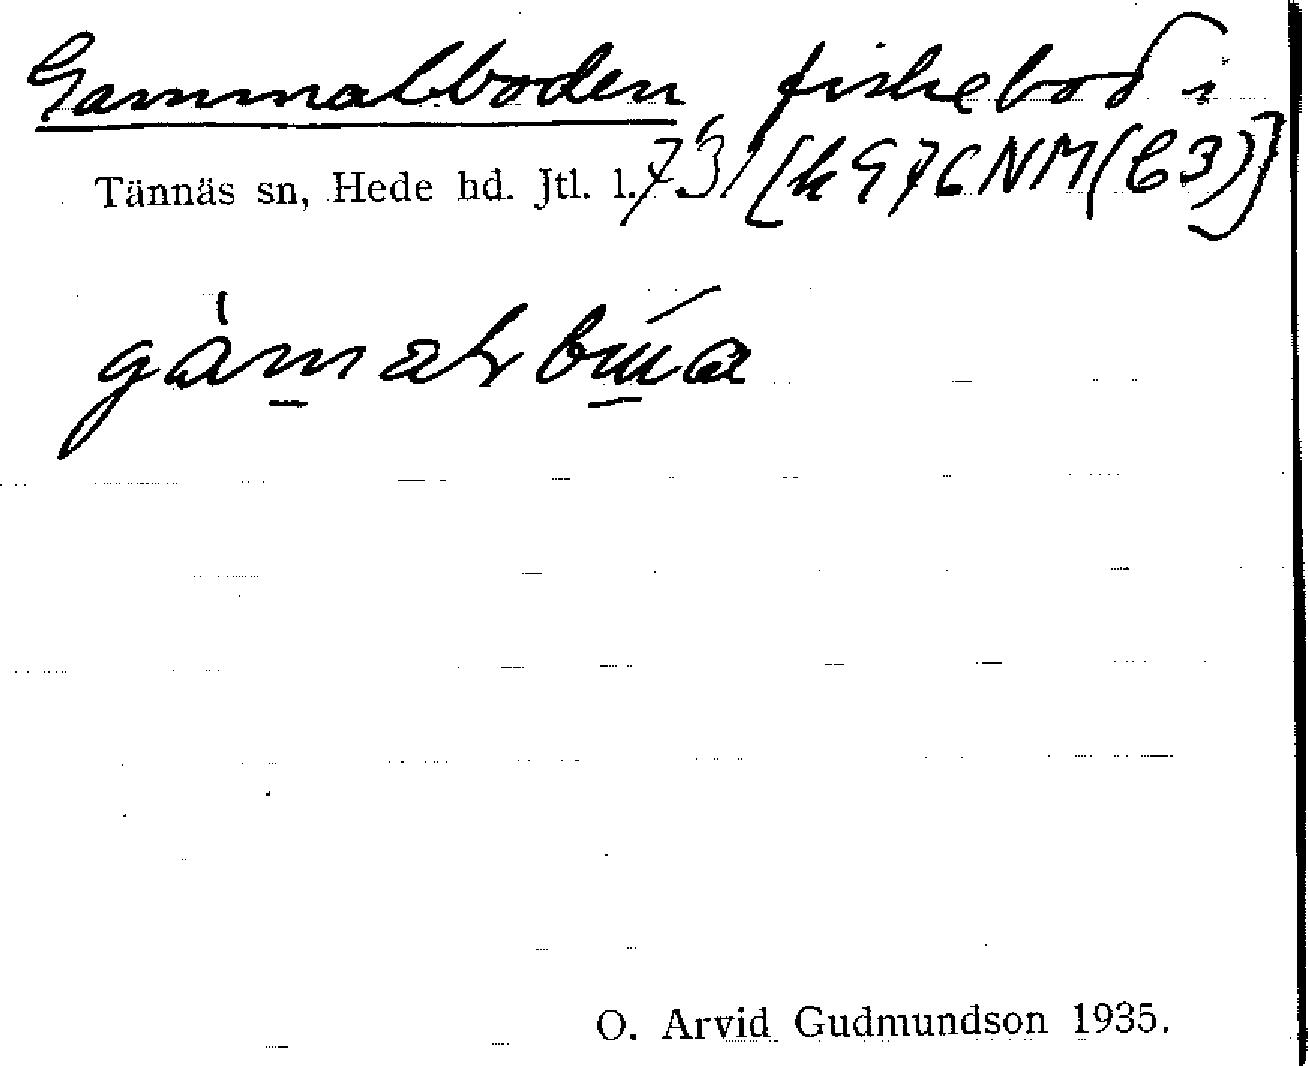 Gammalboden fiskebod i
Tännäs sn, Hede hd. Jtl. l. 73 [k 976 NM (C3)]
O. Arvid Gudmundson 1935.